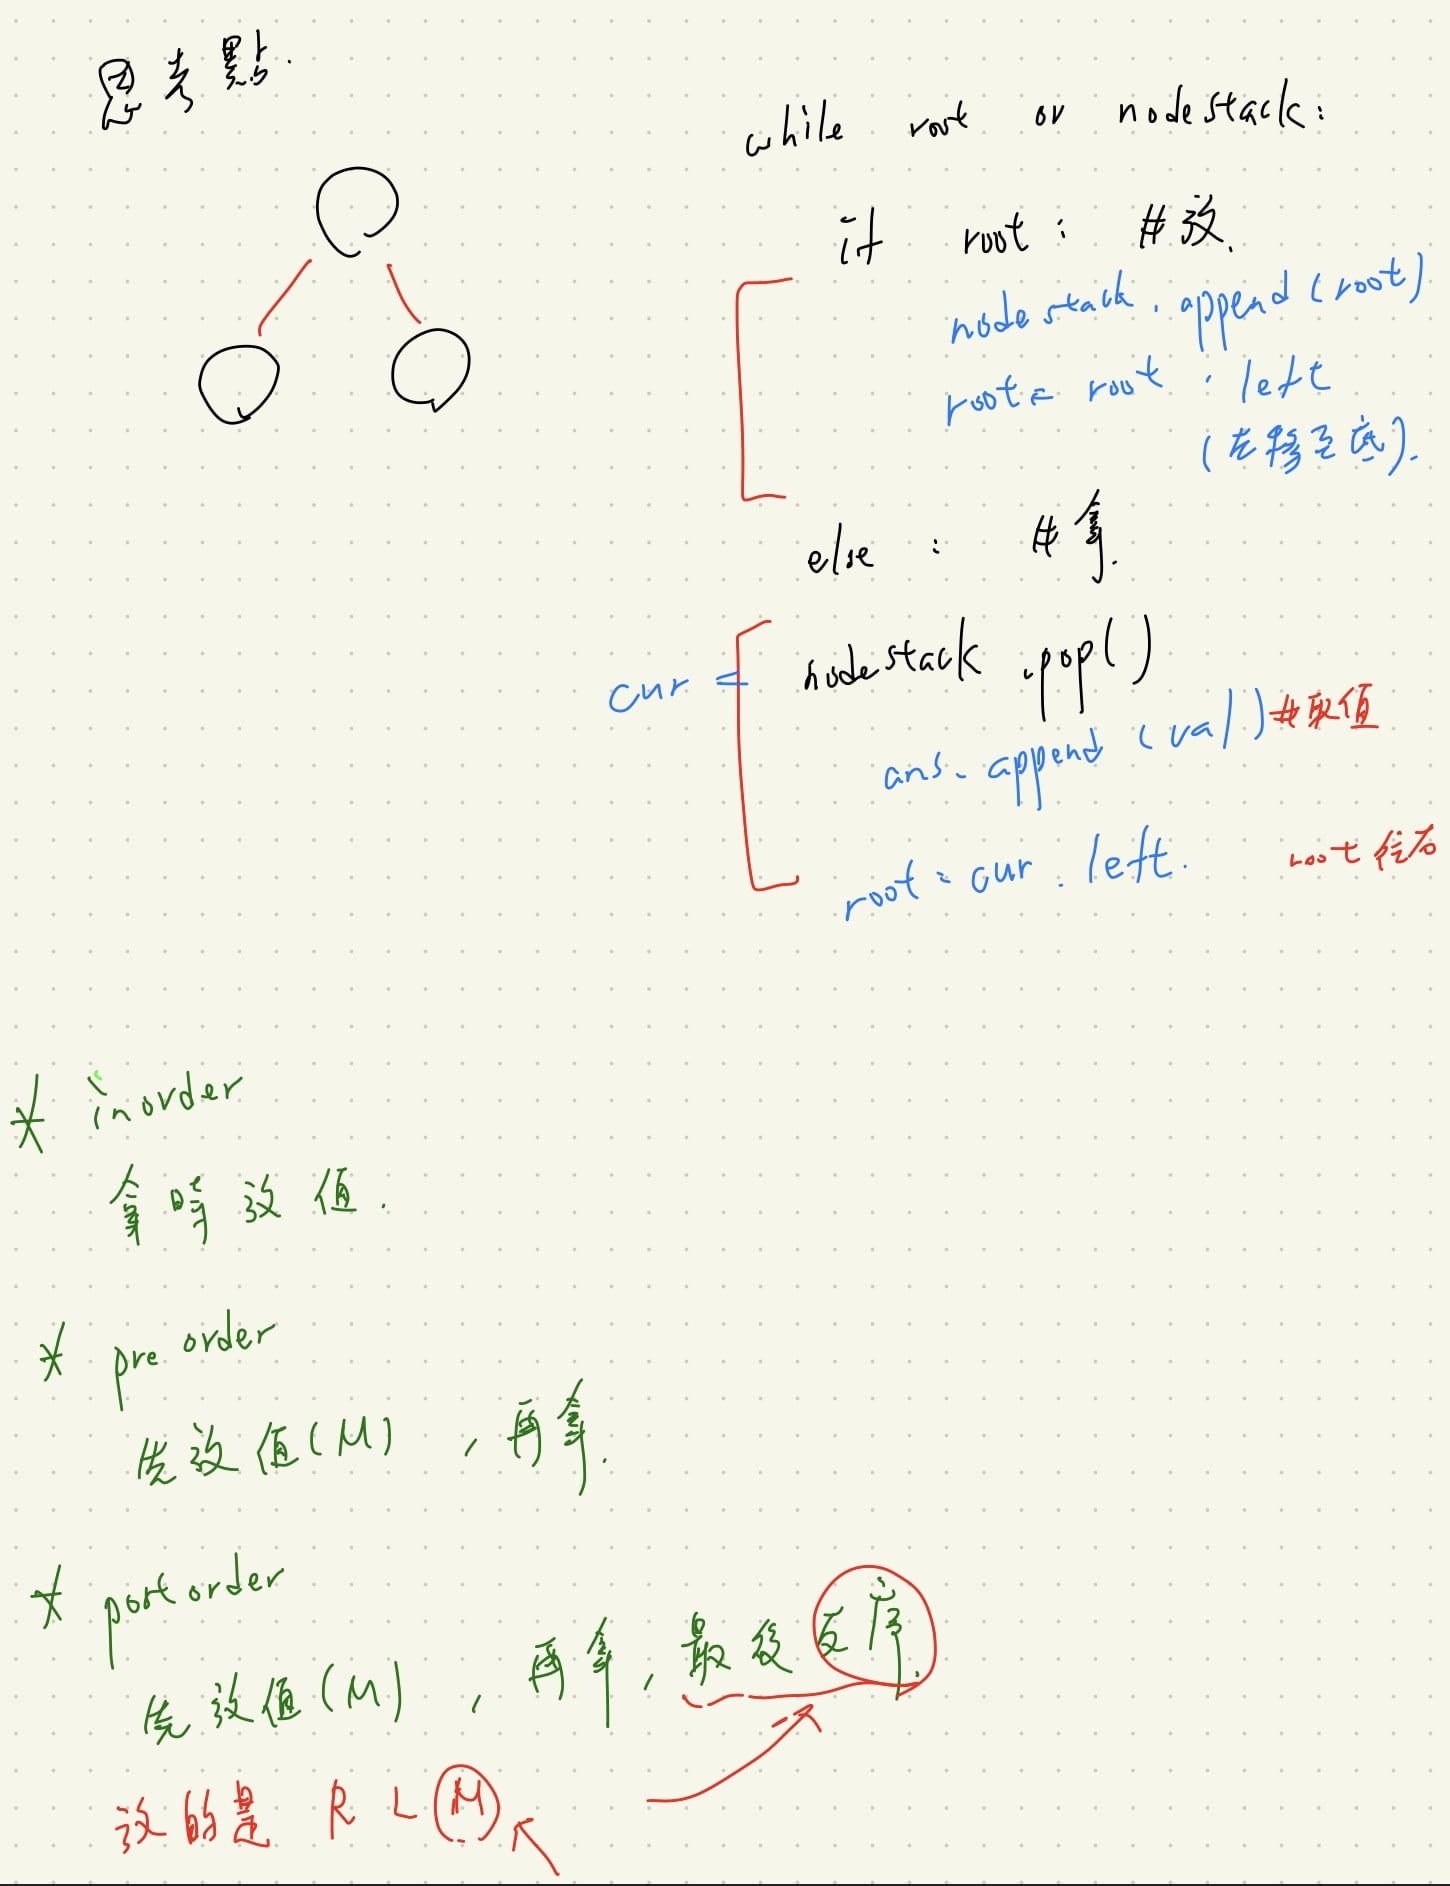 思考點.
while root or nodestack:
if root: #放.
nodestack.append(root)
root = root.left
(左移至底).
else: #拿.
cur = nodestack.pop()
ans.append(val) #取值
root = cur.left. root 往右
* inorder
拿時放值.
* preorder
先放值(M), 再拿.
* postorder
先放值(M), 再拿, 最後反序.
放的是 R L M